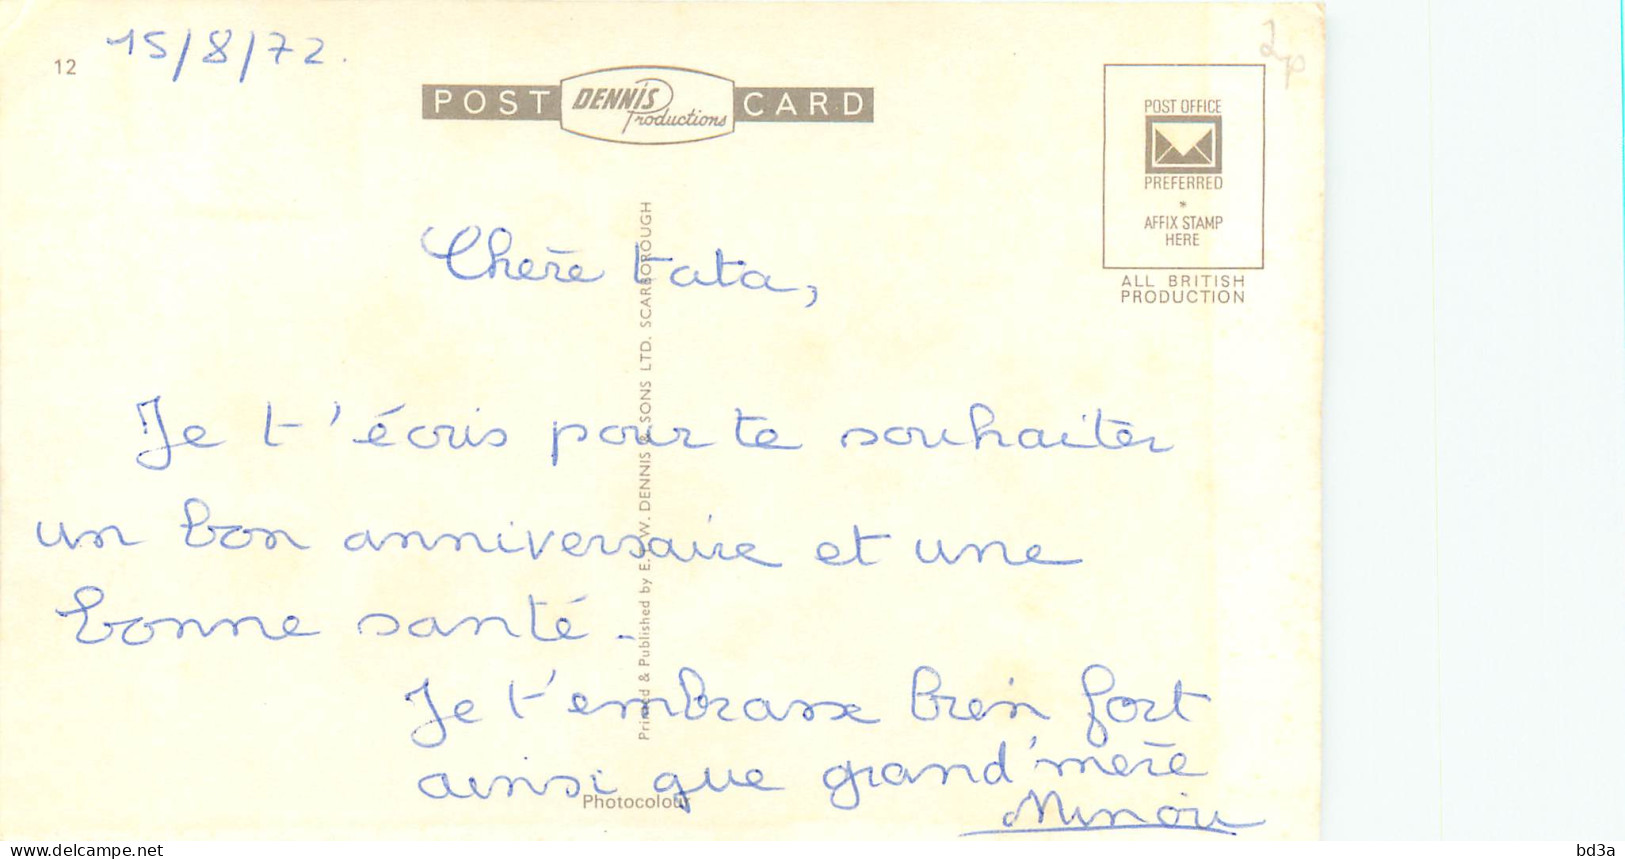 12
15/8/72.
POST DENNIS Productions CARD
2p
POST OFFICE
PREFERRED
*
AFFIX STAMP
HERE
ALL BRITISH
PRODUCTION
Chère tata,
Je t'écris pour te souhaiter
un bon anniversaire et une
bonne santé.
Je t'embrasse bien fort
ainsi que grand'mère
Minou
Printed & Published by E. T. W. DENNIS & SONS LTD. SCARBOROUGH
Photocolour
www.delcampe.net
bd3a